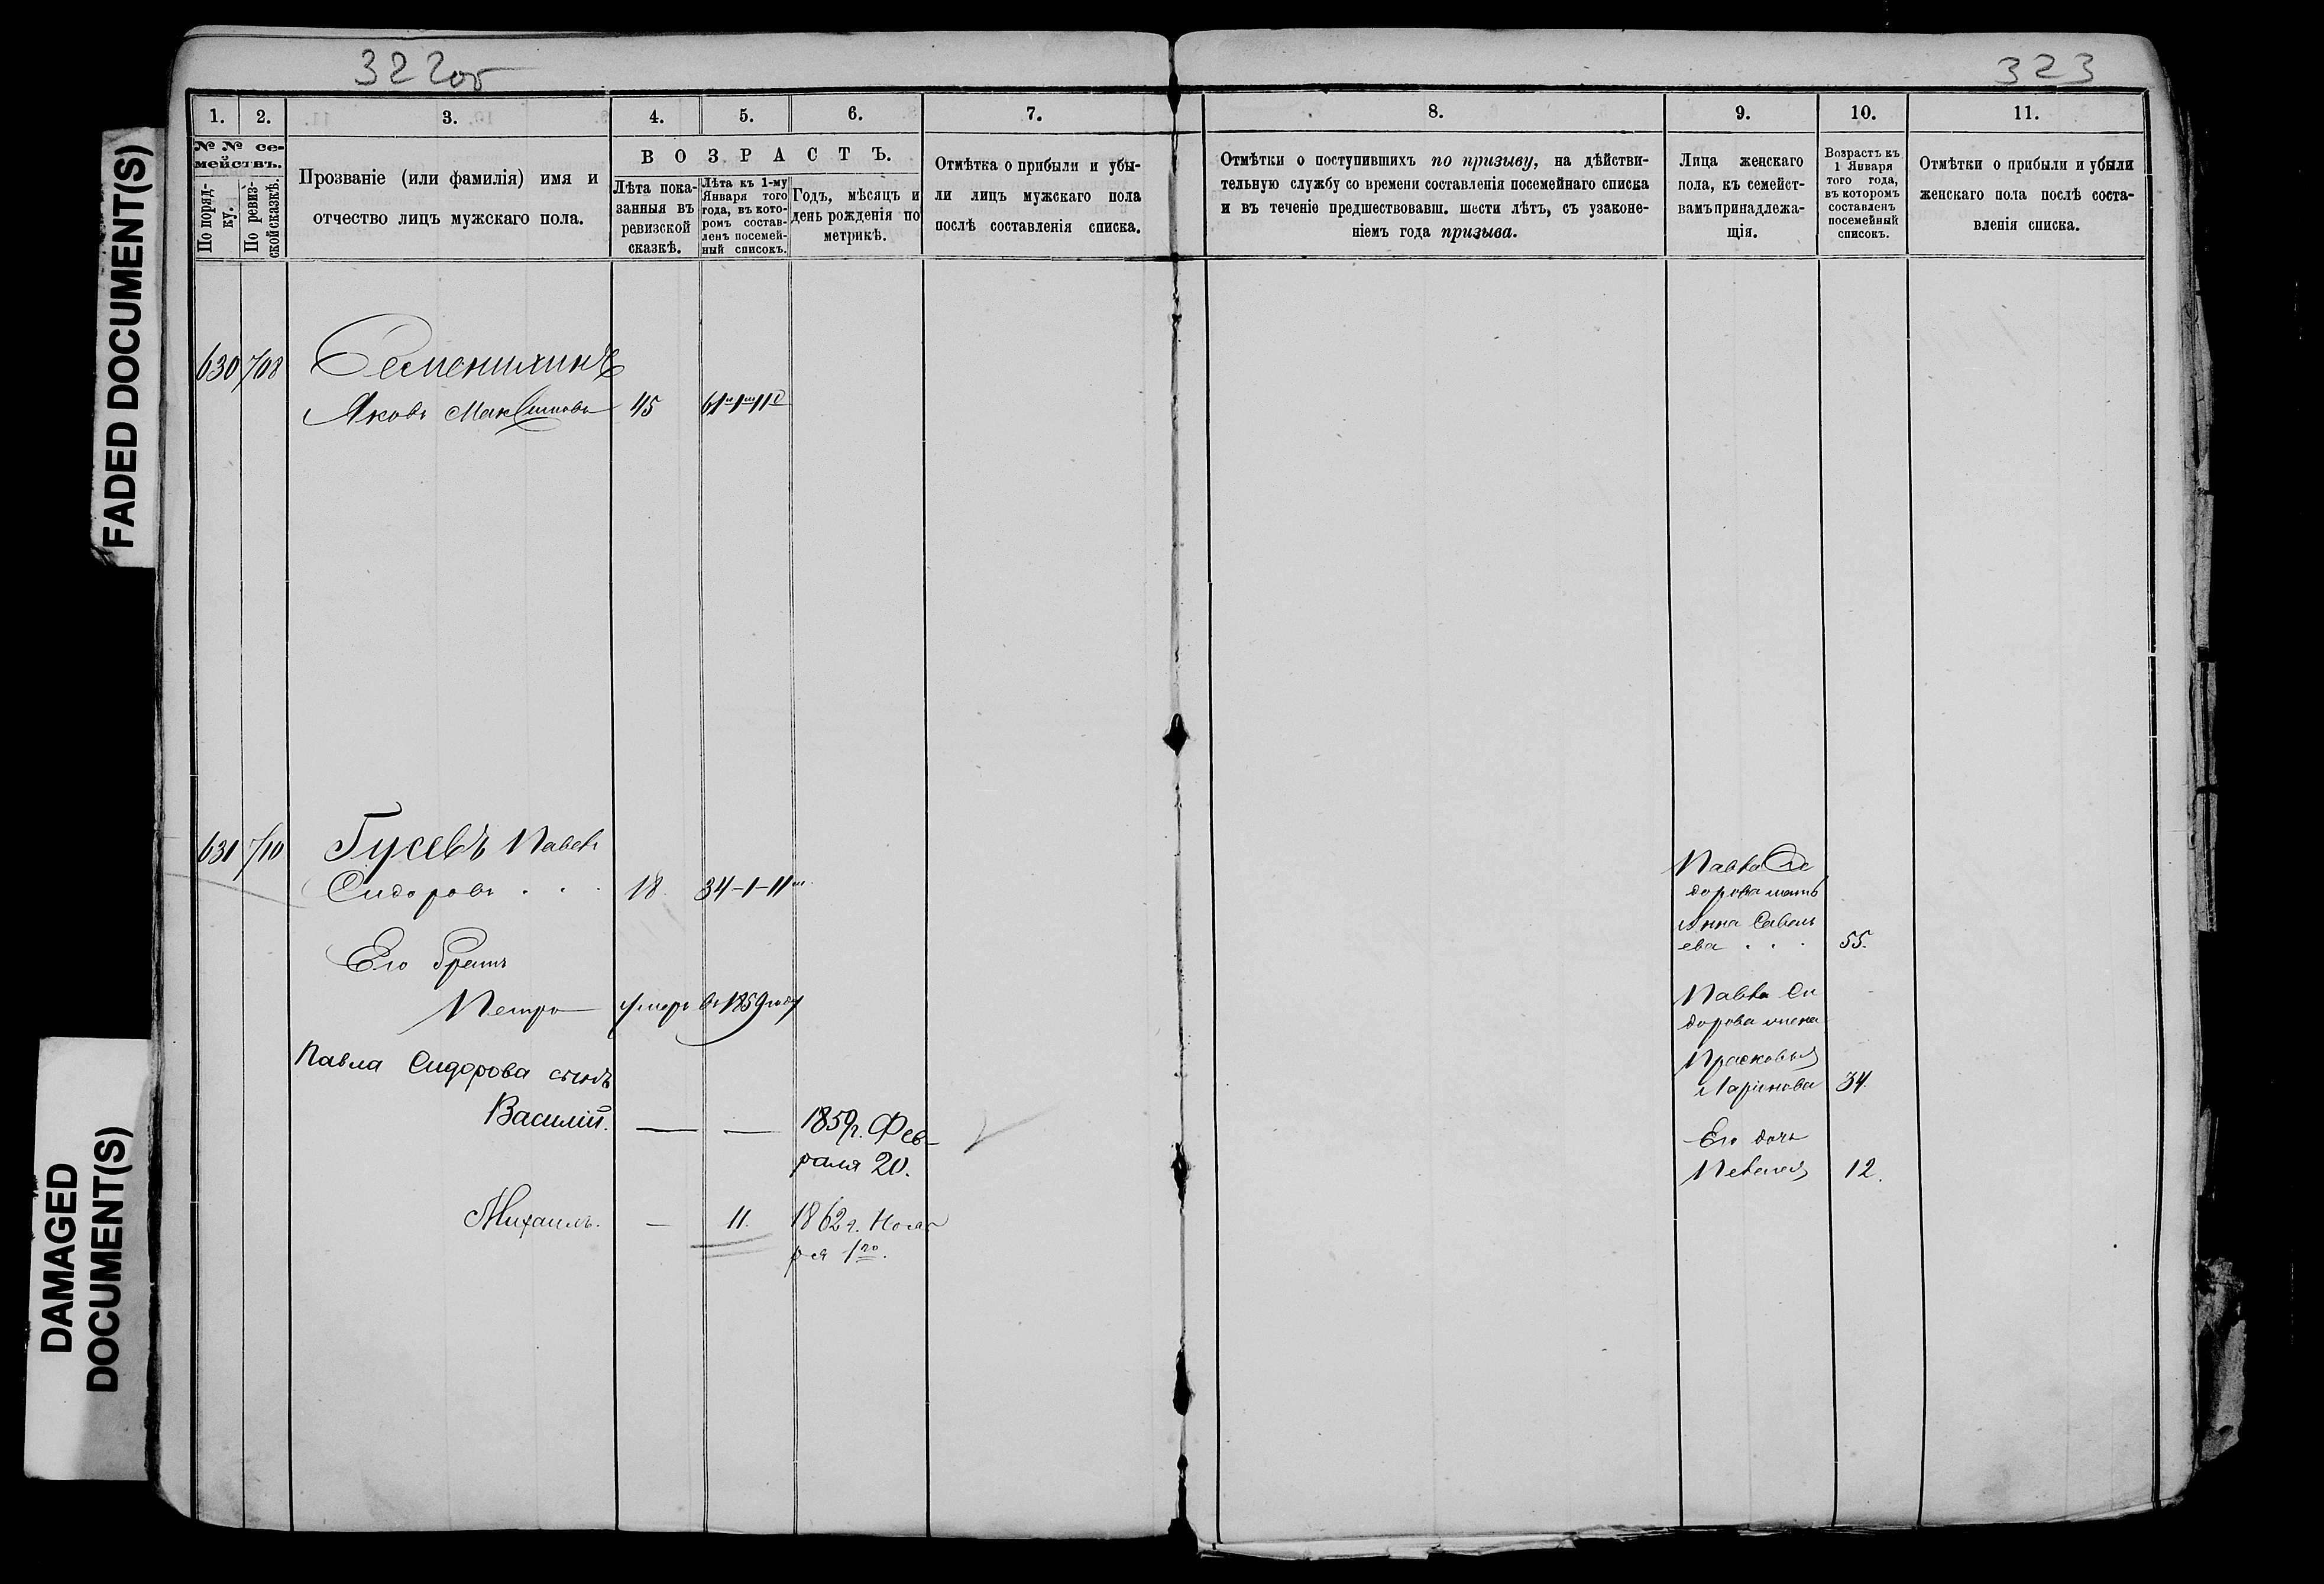 322об
323
FADED DOCUMENT(S)
DAMAGED
DOCUMENT(S)
1. 2. 3. 4. 5. 6. 7. 8. 9. 10. 11.
№ № се-
мействъ.
По поряд-
ку.
По ревиз-
ской сказкѣ.
Прозваніе (или фамилія) имя и
отчество лицъ мужскаго пола.
ВОЗРАСТЪ.
Лѣта пока-
занныя въ
ревизской
сказкѣ.
Лѣта къ 1-му
Января того
года, въ кото-
ромъ состав-
ленъ посемей-
ный списокъ.
Годъ, мѣсяцъ и
день рожденія по
метрикѣ.
Отмѣтка о прибыли и убы-
ли лицъ мужскаго пола
послѣ составленія списка.
Отмѣтки о поступившихъ по призыву, на дѣйстви-
тельную службу со времени составленія посемейнаго списка
и въ теченіе предшествовавш. шести лѣтъ, съ узаконе-
ніемъ года призыва.
Лица женскаго
пола, къ семейст-
вамъ принадлежа-
щія.
Возрастъ къ
1 Января
того года,
въ которомъ
составленъ
посемейный
списокъ.
Отмѣтки о прибыли и убыли
женскаго пола послѣ соста-
вленія списка.
630 708 Семенихинъ
Яковъ Максимовъ 45 61
631 710 Гусевъ Павелъ
Сидоровъ . . . 18. 34-1-11
Его братъ
Петръ умеръ въ 1859 году
Павла Сидорова сынъ
Василій. — — 1859г. Фев-
раля 20.
Михаилъ. — 11. 1862г. Нояб
ря 1го.
Павла Си
дорова мать
Анна Савель
ева . . . 55.
Павла Си
дорова жена
Прасковья
Ларіонова 34.
Его дочь
Пелагея 12.